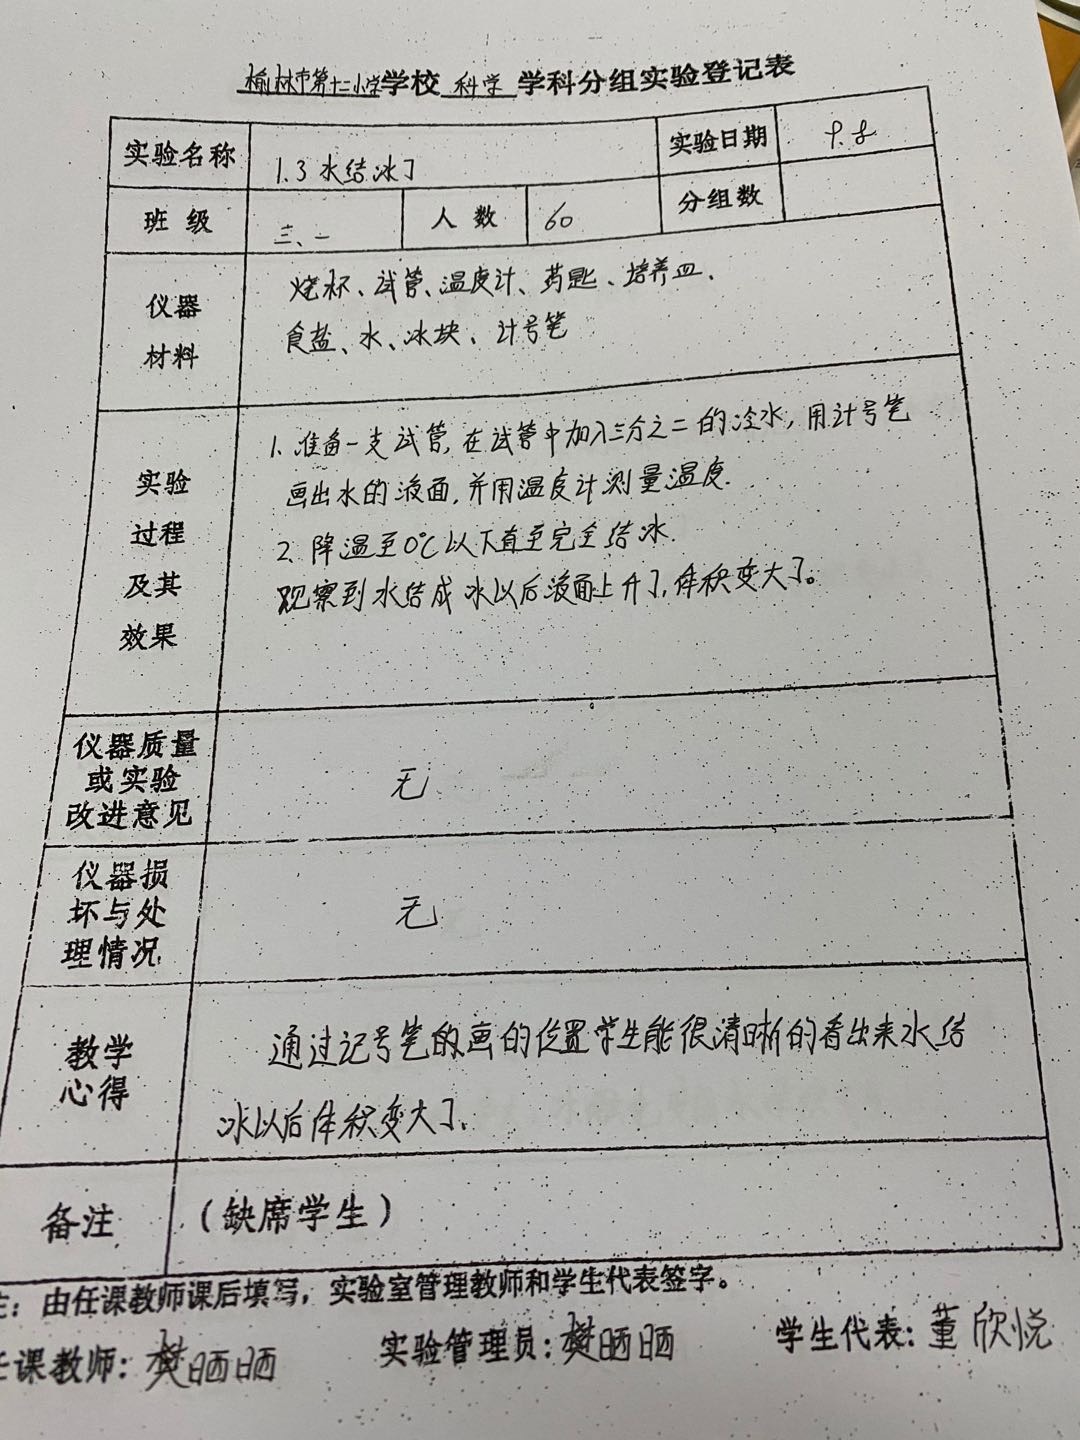 榆林市第十二小学学校 科学 学科分组实验登记表
实验名称 1.3水结冰了 实验日期 9.8
班级 三、一 人数 60 分组数
仪器 烧杯、试管、温度计、药匙、培养皿、
材料 食盐、水、冰块、计号笔
实验 1.准备一支试管,在试管中加入三分之二的冷水,用计号笔
过程 画出水的液面,并用温度计测量温度.
及其 2.降温至0℃以下直至完全结冰.
效果 观察到水结成冰以后液面上升了,体积变大了。
仪器质量
或实验 无
改进意见
仪器损
坏与处 无
理情况
教学 通过记号笔的画的位置学生能很清晰的看出来水结
心得 冰以后体积变大了.
备注 (缺席学生)
注:由任课教师课后填写,实验室管理教师和学生代表签字。
任课教师:樊晒晒 实验管理员:樊晒晒 学生代表:董欣悦